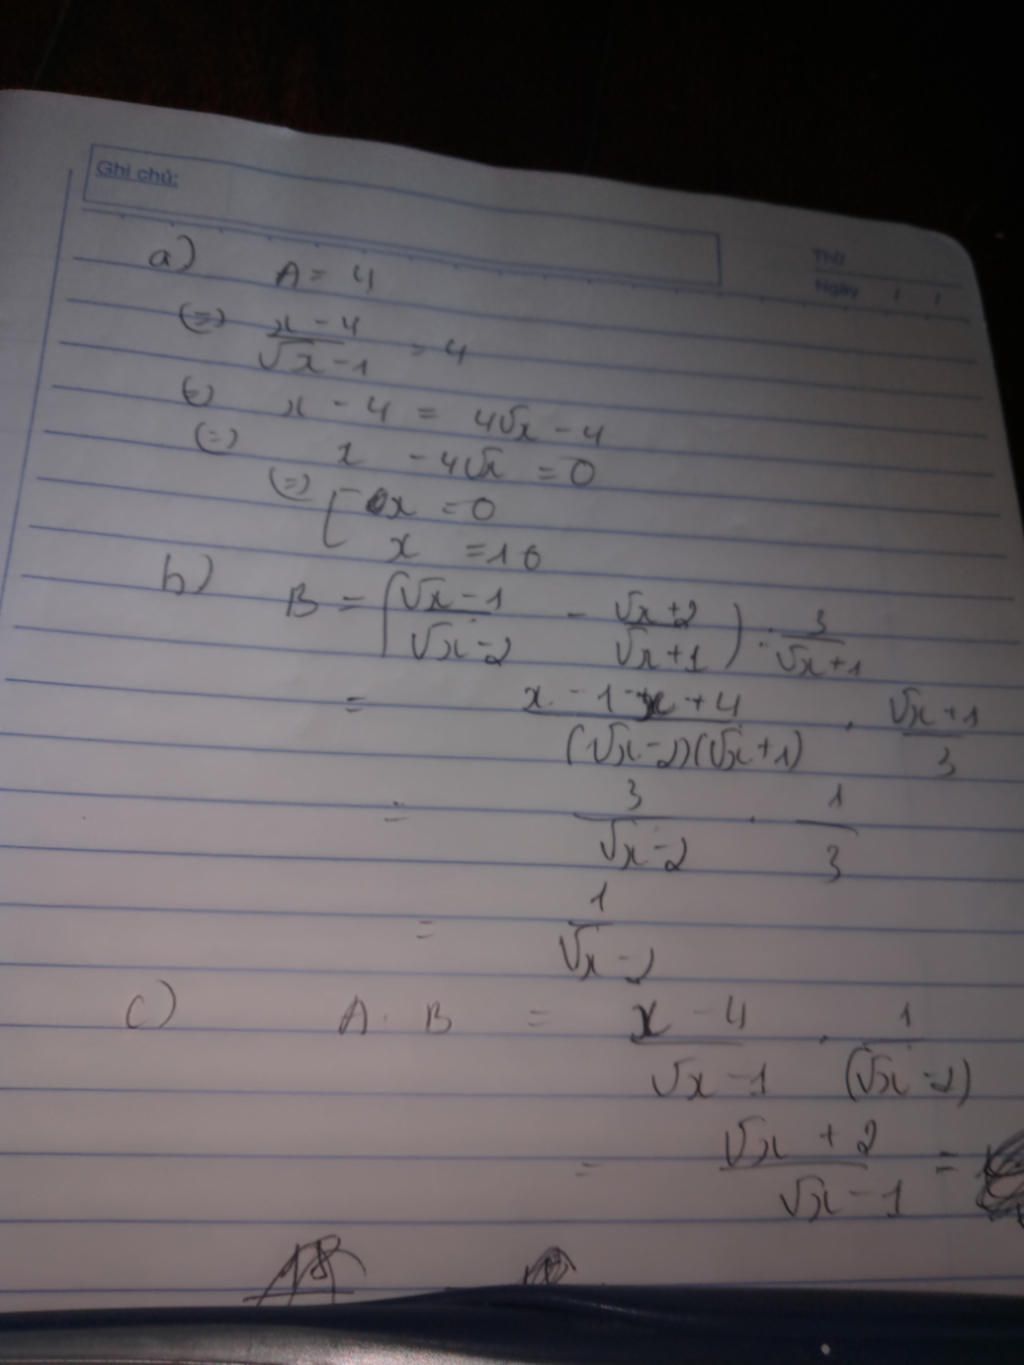 Ghi chú:
Thứ
Ngày / /
a) A = 4
(=) x - 4 / √x - 1 = 4
(=) x - 4 = 4√x - 4
(=) x - 4√x = 0
(=) [ x = 0
x = 16
b) B = ( √x - 1 / √x - 2 - √x + 2 / √x + 1 ) : 3 / √x + 1
= x - 1 - x + 4 / (√x - 2)(√x + 1) . √x + 1 / 3
= 3 / √x - 2 . 1 / 3
= 1 / √x - 2
c) A . B = x - 4 / √x - 1 . 1 / (√x - 2)
= √x + 2 / √x - 1 =
18